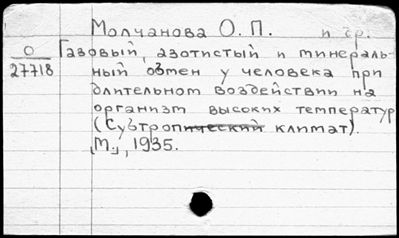 Молчанова О. П. и др.
О
27718
Газовый, азотистый и минераль-
ный обмен у человека при
длительном воздействии на
организм высоких температур
(Субтропический климат).
[М.], 1935.